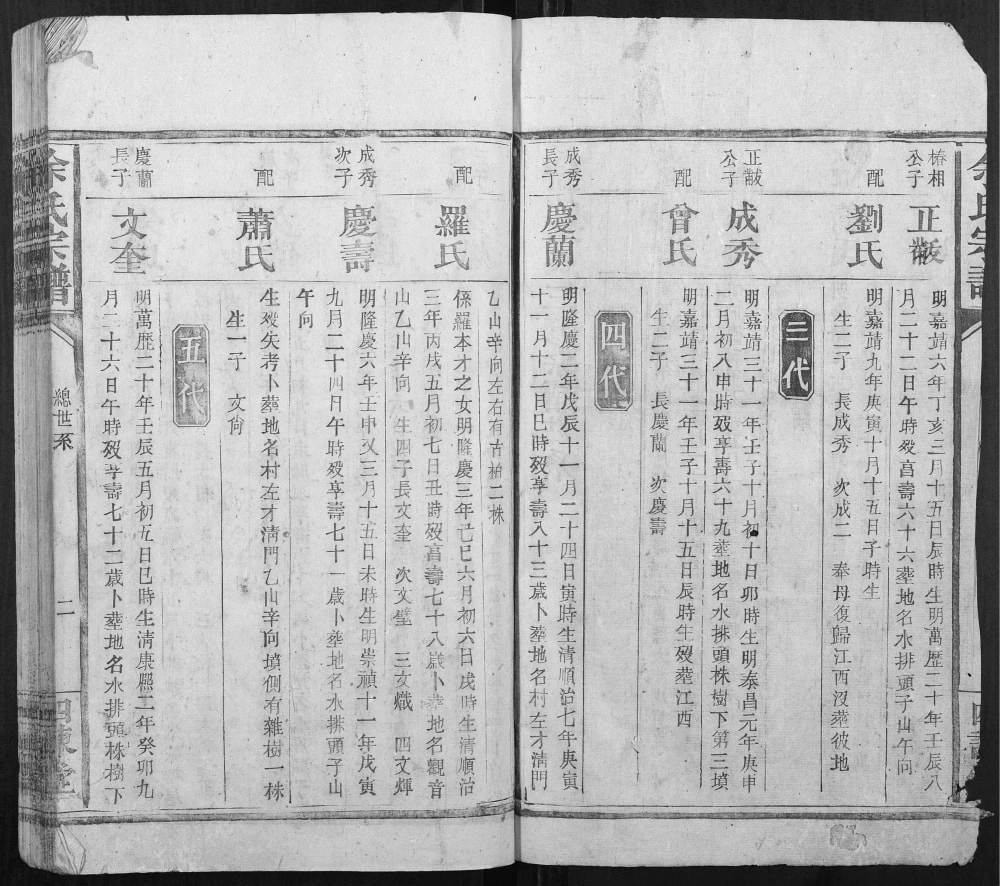 余氏宗譜
椿相
公子
正黻
明嘉靖六年丁亥三月十五日辰時生明萬歷二十年壬辰八
月二十二日午時歿享壽六十六葬地名水排頭子山午向
配
劉氏
明嘉靖九年庚寅十月十五日子時生
生二子 長成秀 次成二 奉母復歸江西沒葬彼地
三代
正黻
公子
成秀
明嘉靖三十一年壬子十月初十日卯時生明泰昌元年庚申
二月初八申時歿享壽六十九葬地名水排頭株樹下第三墳
配
曾氏
明嘉靖三十一年壬子十月十五日辰時生歿葬江西
生二子 長慶蘭 次慶壽
四代
成秀
長子
慶蘭
明隆慶二年戊辰十一月二十四日寅時生清順治七年庚寅
十一月十二日巳時歿享壽八十三歲卜葬地名村左才淸門
乙山辛向左右有古柏二株
配
羅氏
係羅本才之女明隆慶三年亡巳六月初六日戌時生清順治
三年丙戌五月初七日丑時歿享壽七十八歲卜葬地名觀音
山乙山辛向 生四子長文奎 次文璧 三文熾 四文輝
成秀
次子
慶壽
明隆慶六年壬申又三月十五日未時生明崇禎十一年戊寅
九月二十四日午時歿享壽七十一歲卜葬地名水排頭子山
午向
配
蕭氏
生歿失考卜葬地名村左才淸門乙山辛向墳側有雜樹一株
生一子 文尙
五代
慶蘭
長子
文奎
明萬歷二十年壬辰五月初五日巳時生清康熙二年癸卯九
月二十六日午時歿享壽七十二歲卜葬地名水排頭株樹下
余氏宗譜
總世系
二